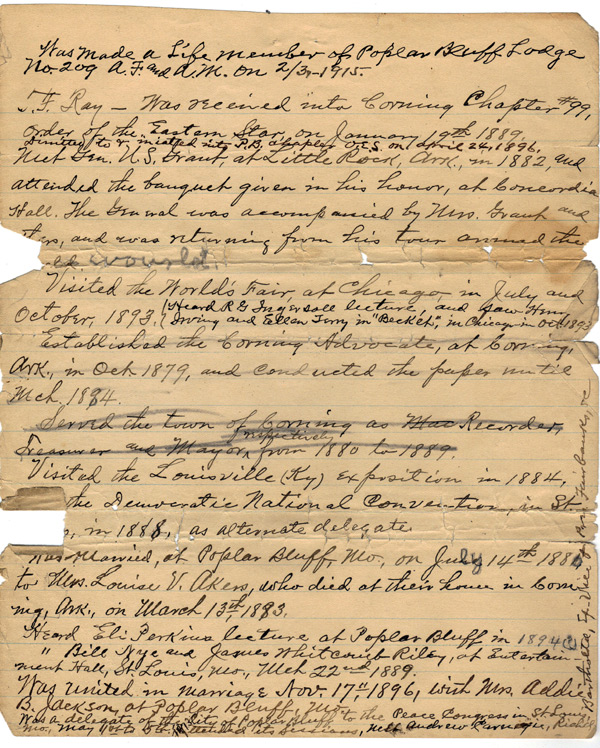 Was made a Life member of Poplar Bluff Lodge
No. 209 A.F. and A.M. on 2/3-1915.
T.F. Ray — Was received into Corning Chapter #99,
Order of the Eastern Star, on January 19th 1889.
Dimitted to &, P.B. chapter O.E.S. on April 24, 1896.
Met Gen. U.S. Grant, at Little Rock, Ark., in 1882, and
attended the banquet given in his honor, at Concordia
Hall. The General was accompanied by Mrs. Grant and
and was returning from his tour around the
Visited the World's Fair, at Chicago, in July and
October, 1893. (Heard R G Ingersoll lecture, and saw Henry
Irving and Ellen Terry in "Becket", in Chicago in Oct. 1893
Established the Corning Advocate, at Corning,
Ark., in Oct. 1879, and conducted the paper until
Mch. 1884.
Served the town of Corning as Mac Recorder,
Treasurer and Mayor, respectively from 1880 to 1889.
Visited the Louisville (Ky) exposition in 1884,
the Democratic National Convention, in St.
in 1888, as alternate delegate
Was Married, at Poplar Bluff, Mo., on July 14th 188
to Mrs. Louise V. Akers, who died at their house in Corn-
ing, Ark., on March 13th, 1883.
Heard Eli Perkins lecture at Poplar Bluff in 1894
" Bill Nye and James Whitcomb Riley, at Entertain-
ment Hall, St. Louis, Mo., Mch 22nd 1889.
Was united in marriage Nov. 17th, 1896, with Mrs. Addie
B. Jackson, at Poplar Bluff, Mo.
Was a delegate of the City of Poplar Bluff to the Peace Congress in St. Louis
Mo., May its sessions, met Andrew Carnegie, Rich'd
Bartholdt, Ex-Vice Pres Fairbanks, &c